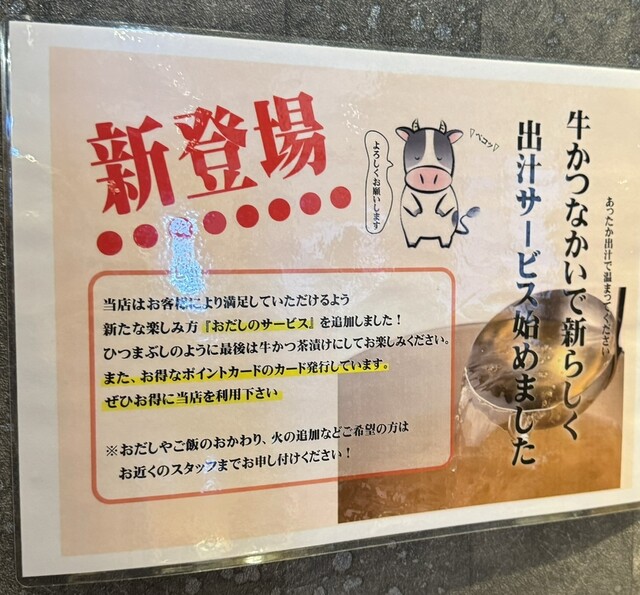 新登場
よろしくお願いします
ペコッ
牛かつなかいで新らしく
出汁サービス始めました
あったか出汁で温まってください
当店はお客様により満足していただけるよう
新たな楽しみ方『おだしのサービス』を追加しました！
ひつまぶしのように最後は牛かつ茶漬けにしてお楽しみください。
また、お得なポイントカードのカード発行しています。
ぜひお得に当店を利用下さい
※おだしやご飯のおかわり、火の追加などご希望の方は
お近くのスタッフまでお申し付けください！